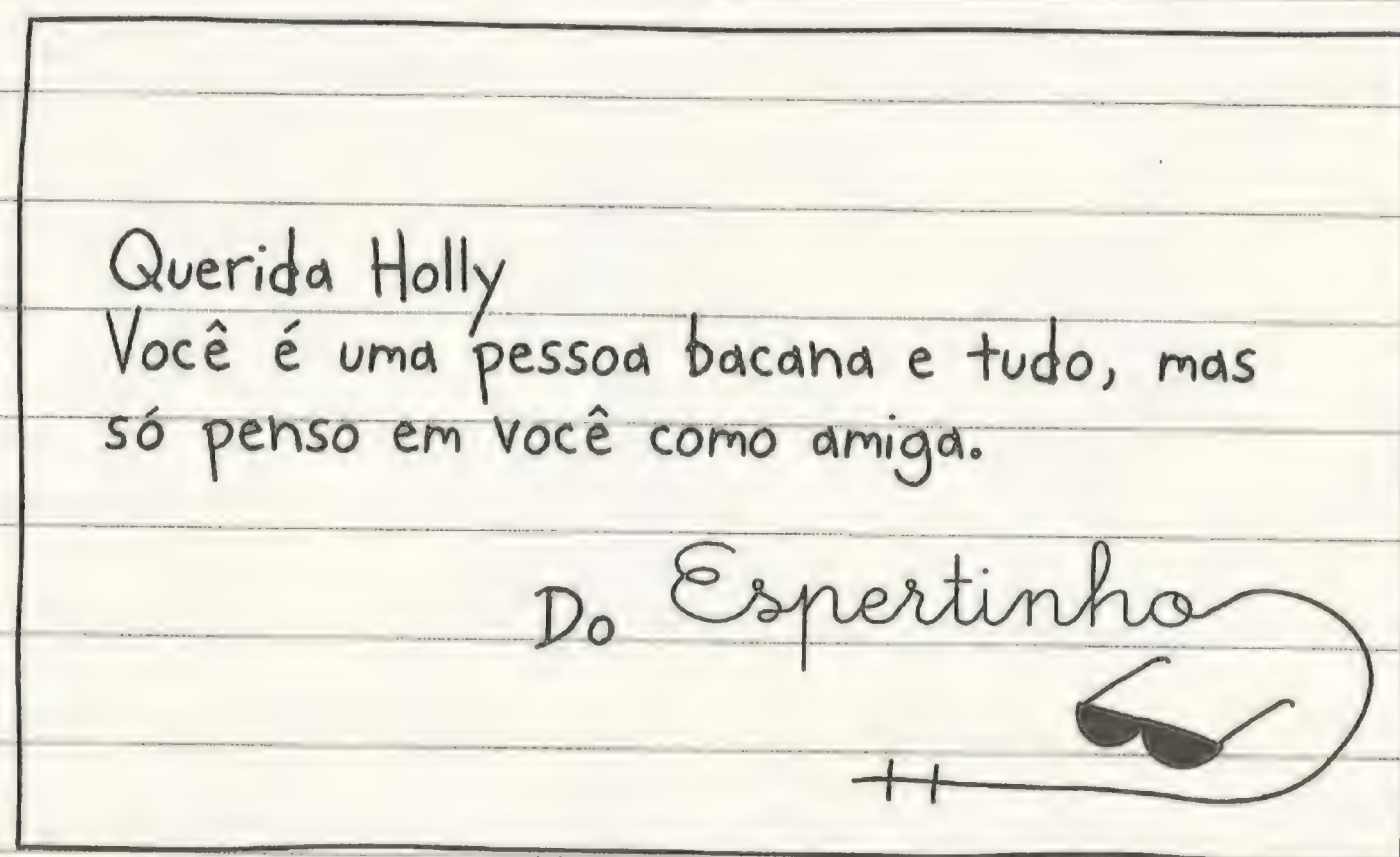 Querida Holly
Você é uma pessoa bacana e tudo, mas
só penso em você como amiga.
Do Espertinho